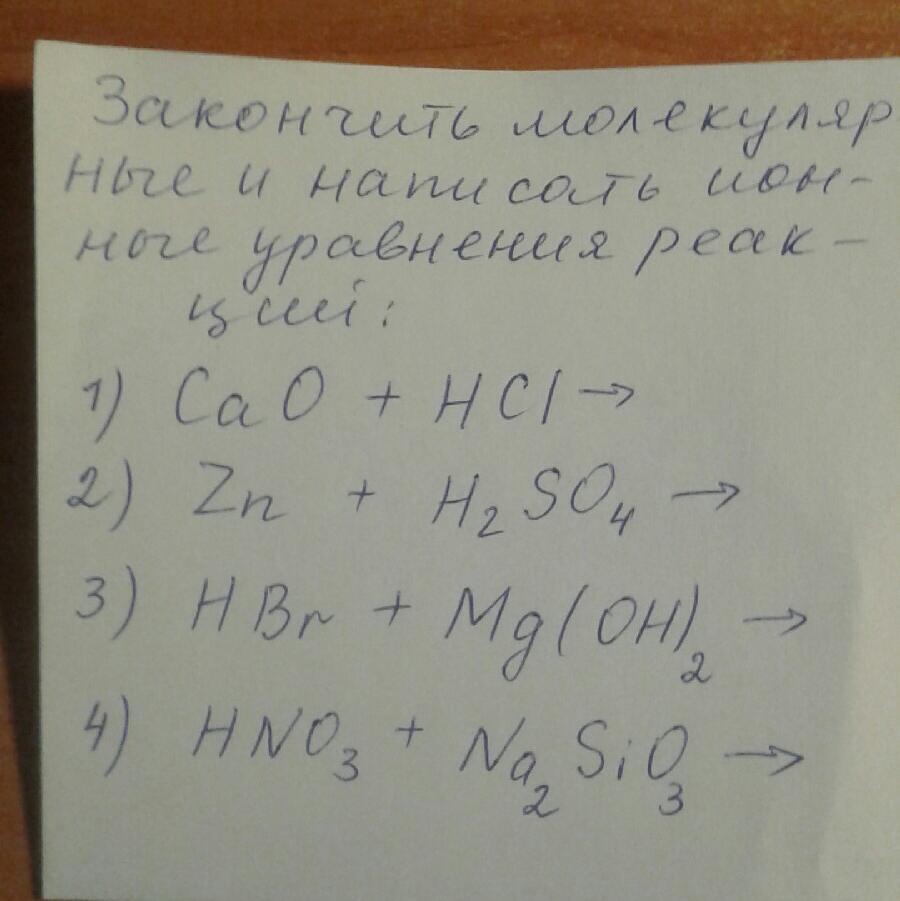 Закончить молекуляр
ные и написать ион-
ные уравнения реак-
ций:
1) CaO + HCl →
2) Zn + H₂SO₄ →
3) HBr + Mg(OH)₂ →
4) HNO₃ + Na₂SiO₃ →